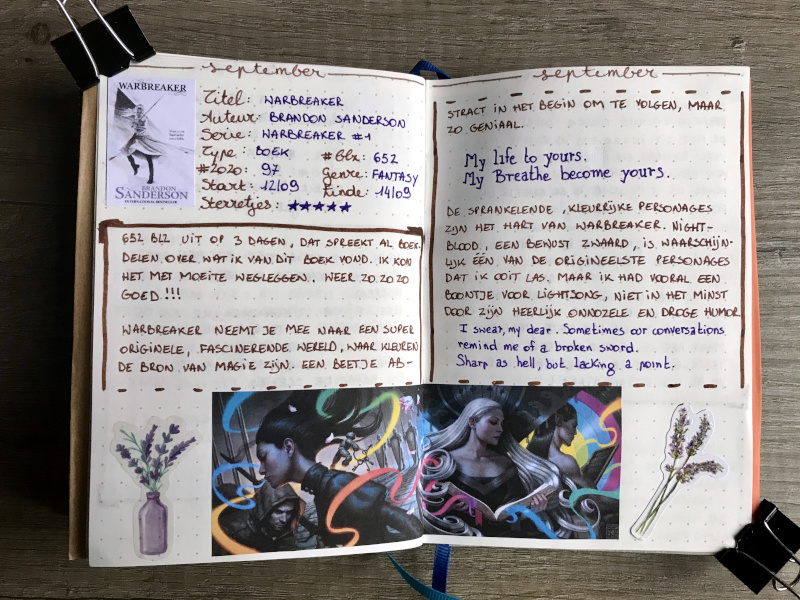 september
WARBREAKER
BRANDON
SANDERSON
INTERNATIONAL BESTSELLER
Titel: WARBREAKER
Auteur: BRANDON SANDERSON
Serie: WARBREAKER #1
Type: BOEK
#Blz: 652
#2020: 97
Genre: FANTASY
Start: 12/09
Einde: 14/09
Sterretjes: ★★★★★
652 BLZ UIT OP 3 DAGEN, DAT SPREEKT AL BOEK-
DELEN OVER WAT IK VAN DIT BOEK VOND. IK KON
HET MET MOEITE WEGLEGGEN. WEER ZO ZO ZO
GOED!!!
WARBREAKER NEEMT JE MEE NAAR EEN SUPER
ORIGINELE, FASCINERENDE WERELD, WAAR KLEUREN
DE BRON VAN MAGIE ZIJN. EEN BEETJE AB-
september
STRACT IN HET BEGIN OM TE VOLGEN, MAAR
ZO GENIAAL.
My life to yours.
My Breathe become yours.
DE SPRANKELENDE, KLEURRIJKE PERSONAGES
ZIJN HET HART VAN WARBREAKER. NIGHT-
BLOOD, EEN BEWUST ZWAARD, IS WAARSCHIJN-
LIJK ÉÉN VAN DE ORIGINEELSTE PERSONAGES
DAT IK OOIT LAS. MAAR IK HAD VOORAL EEN
BOONTJE VOOR LIGHTSONG, NIET IN HET MINST
DOOR ZIJN HEERLIJK ONNOZELE EN DROGE HUMOR
I swear, my dear. Sometimes our conversations
remind me of a broken sword.
Sharp as hell, but lacking a point.